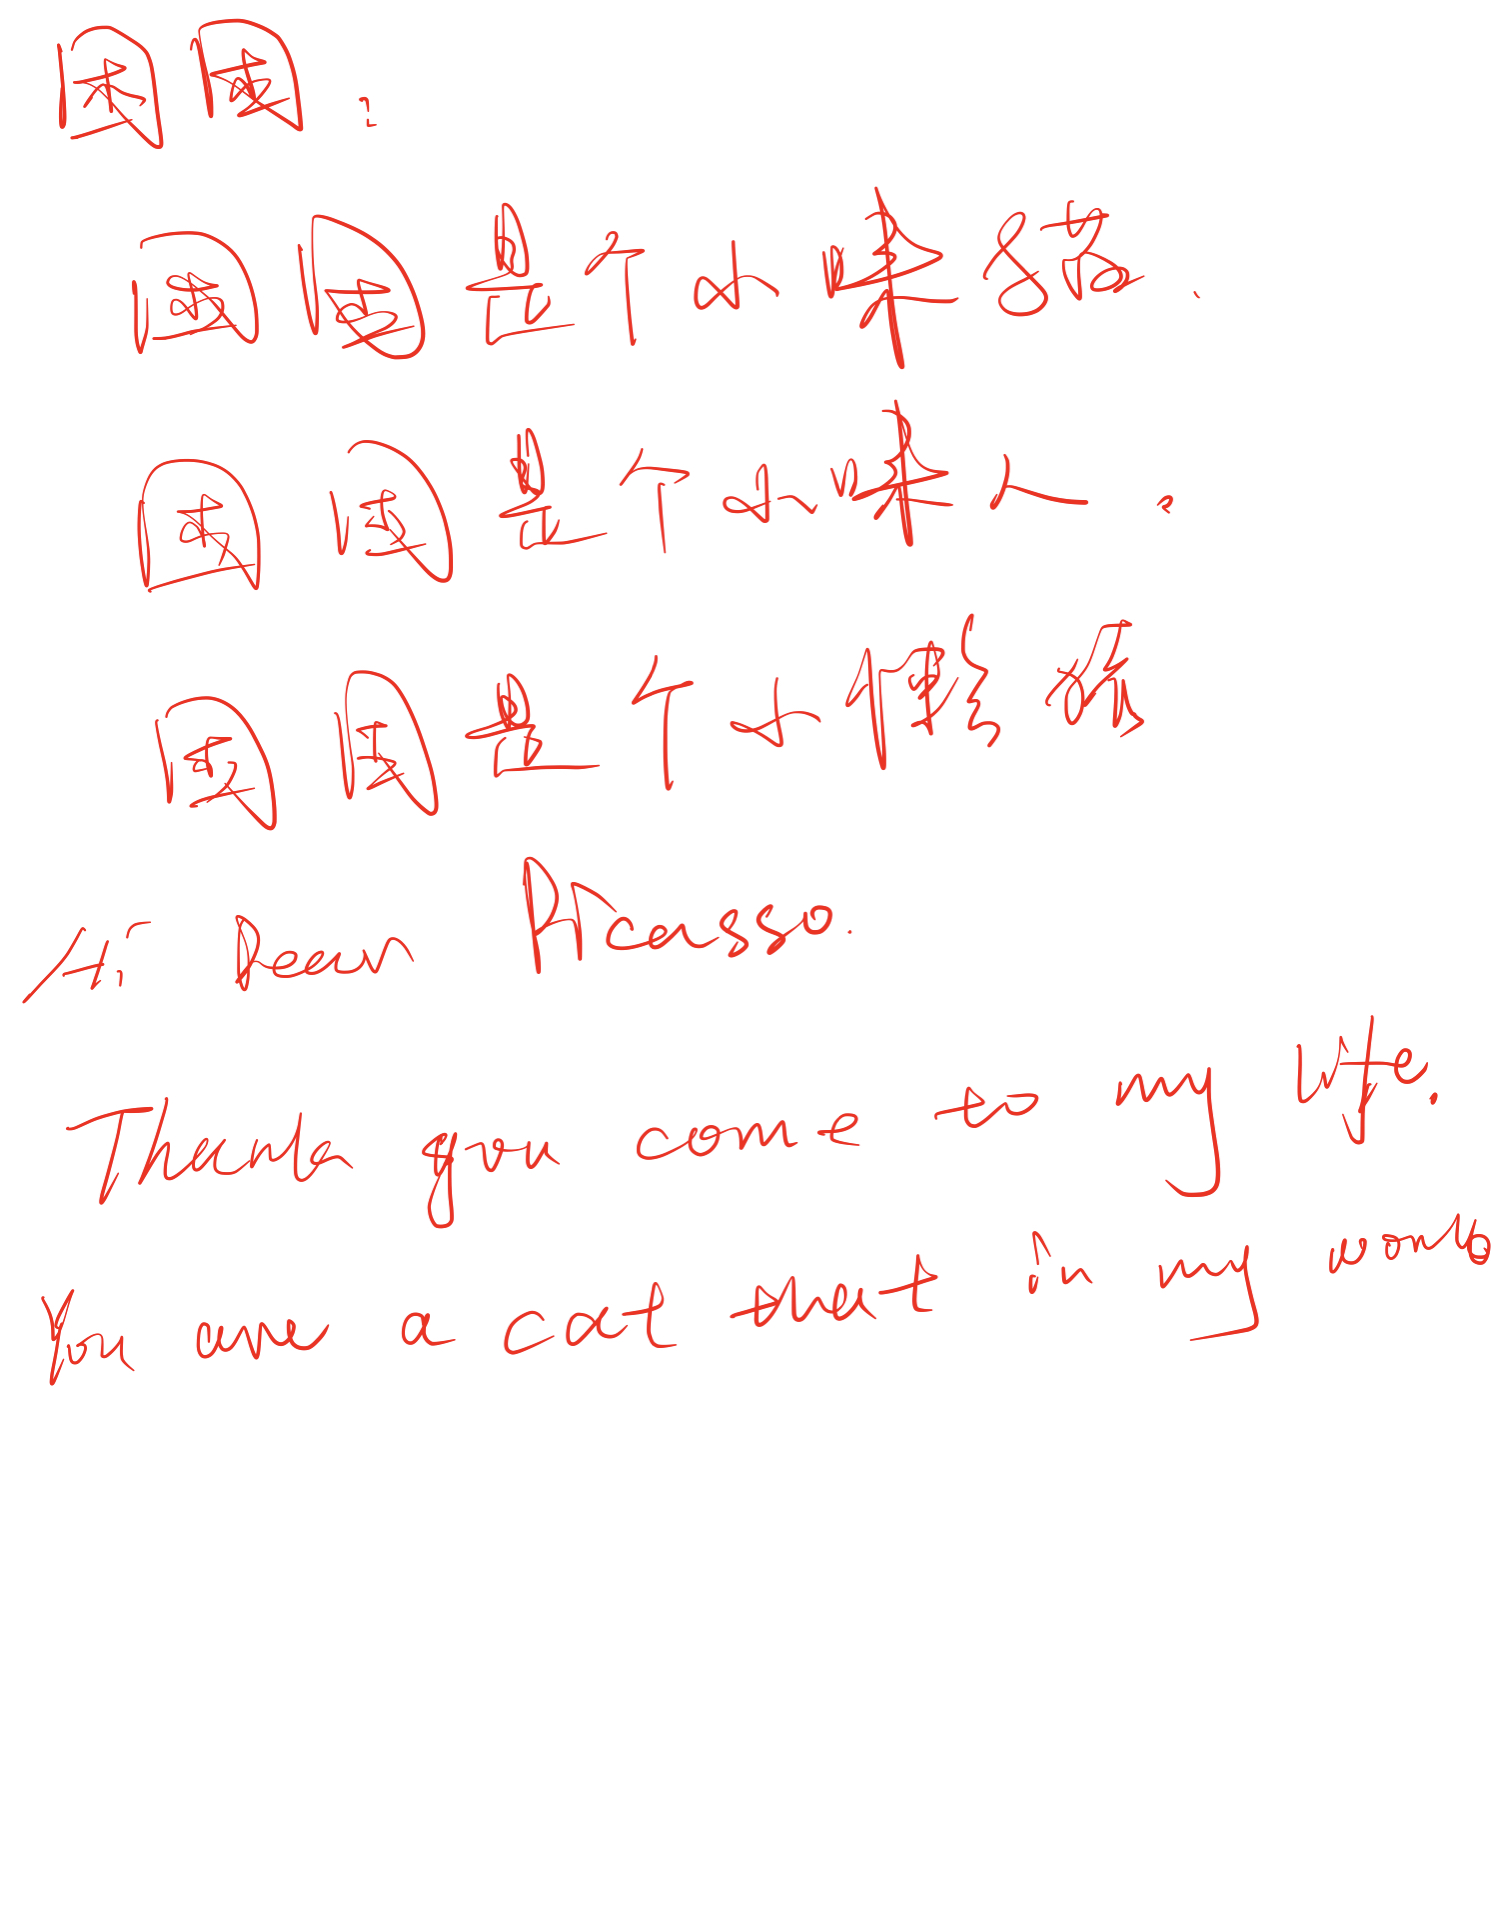 困困:
困困是个小咪猫.
困困是个小咪人.
困困是个小懒猿
Hi Dear Picasso.
Thank you come to my life.
You are a cat that in my world